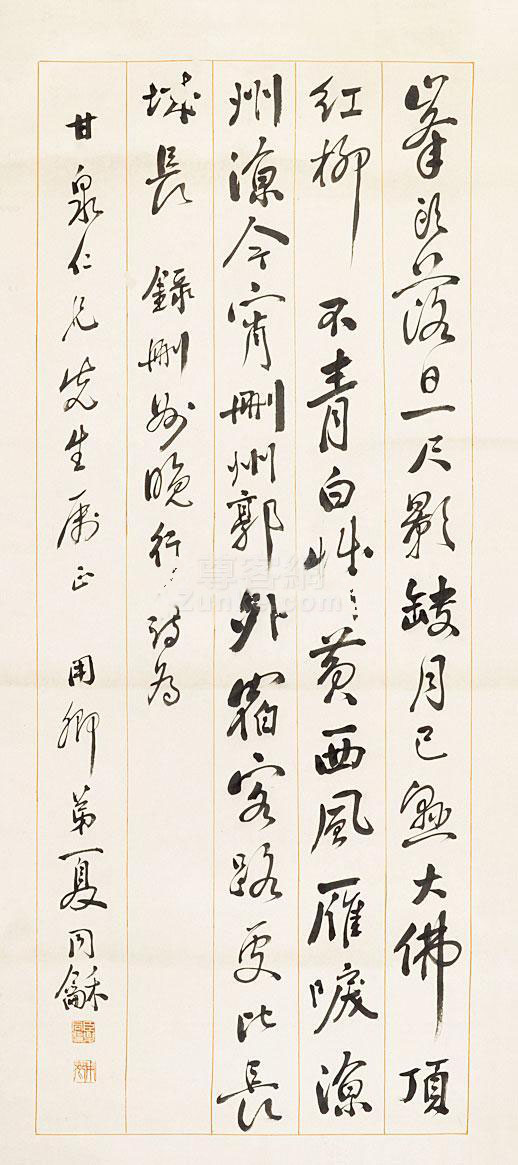 峯頭落日一尺影缺月已懸大佛頂
紅柳不青白草黃西風雁唳涼
州涼今宵刪州郭外宿客路更比長
城長 錄刪州晚行詩為
甘泉仁兄先生屬正 用卿弟夏同龢
尊客網